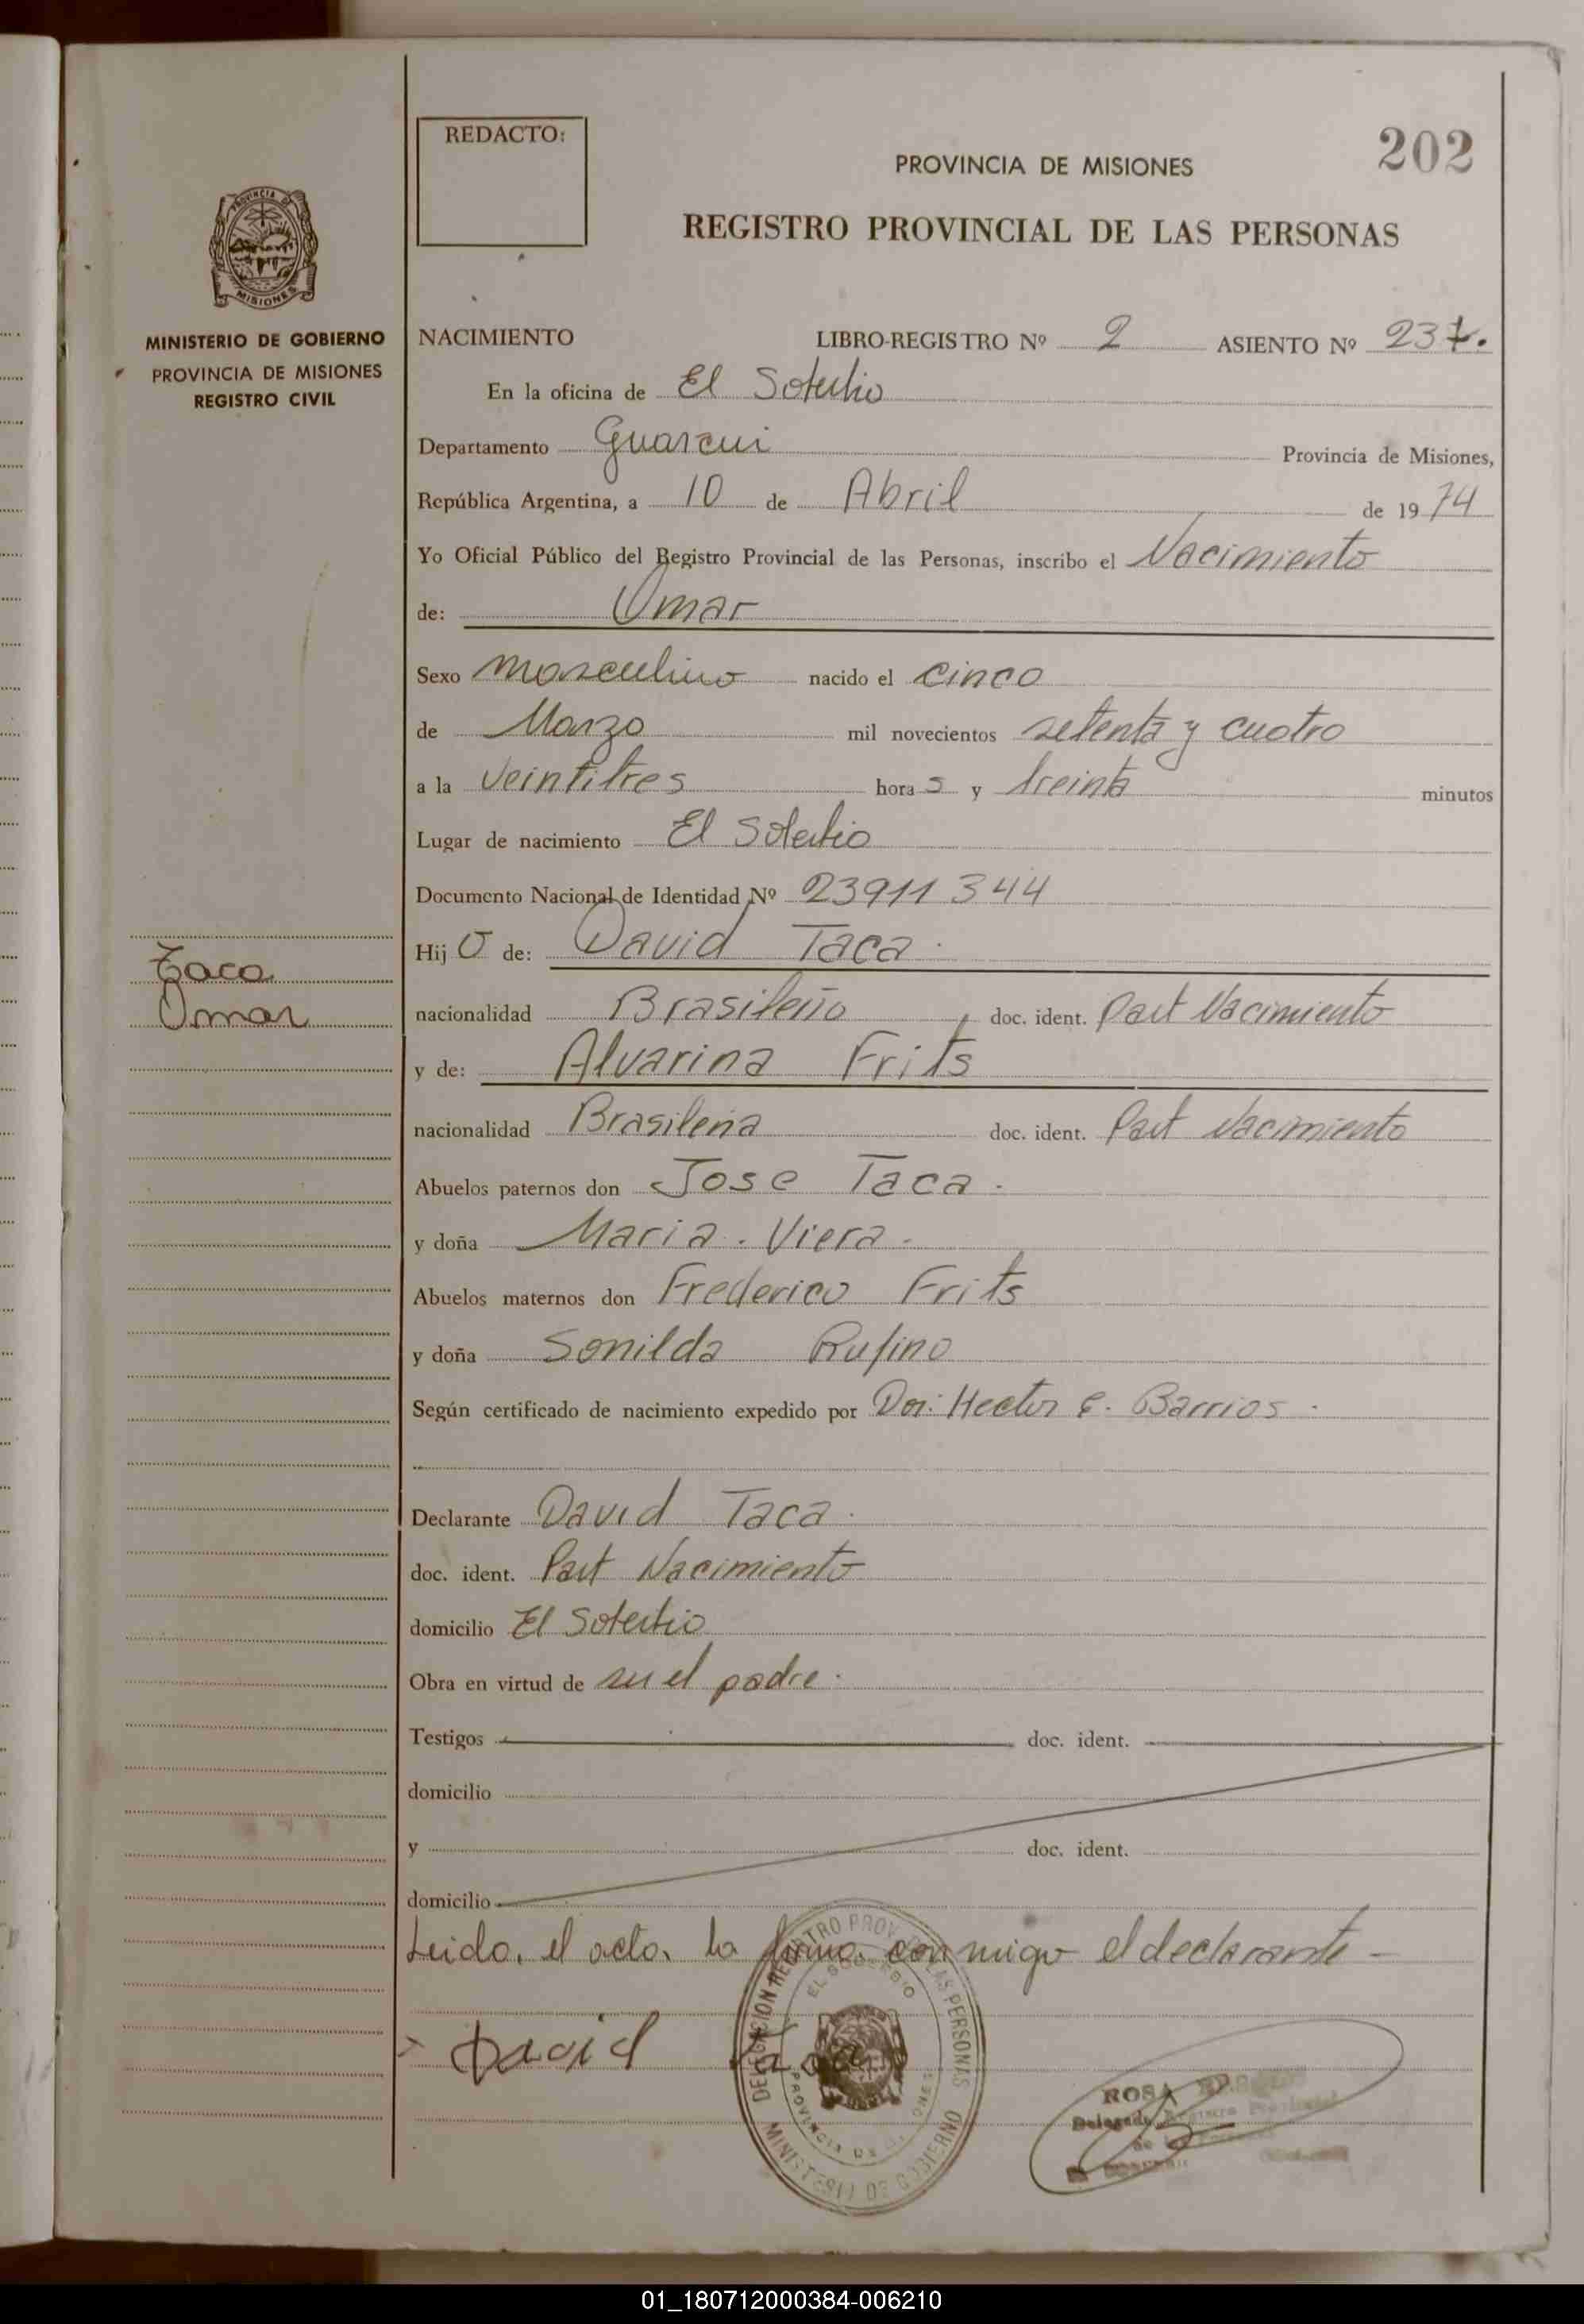 202
REDACTO:
PROVINCIA DE MISIONES
REGISTRO PROVINCIAL DE LAS PERSONAS
PROVINCIA DE
MISIONES
MINISTERIO DE GOBIERNO
PROVINCIA DE MISIONES
REGISTRO CIVIL
NACIMIENTO LIBRO-REGISTRO Nº 2 ASIENTO Nº 237.
En la oficina de El Soberbio
Departamento Guarani Provincia de Misiones,
República Argentina, a 10 de Abril de 1974
Yo Oficial Público del Registro Provincial de las Personas, inscribo el Nacimiento
de: Omar
Sexo Masculino nacido el cinco
de Marzo mil novecientos setenta y cuatro
a la veintitres horas y treinta minutos
Lugar de nacimiento El Soberbio
Documento Nacional de Identidad Nº 23911344
Hijo de: David Taca.
Taca
Omar
nacionalidad Brasileño, doc. ident. Part Nacimiento
y de: Alvarina Frits
nacionalidad Brasileña doc. ident. Part Nacimiento
Abuelos paternos don Jose Taca.
y doña Maria. Viera.
Abuelos maternos don Frederico Frits
y doña Senilda Rufino
Según certificado de nacimiento expedido por Dor: Hector E. Barrios.
Declarante David Taca.
doc. ident. Part Nacimiento
domicilio El Soberbio
Obra en virtud de ser el padre.
Testigos doc. ident.
domicilio
y doc. ident.
domicilio
Leido, el acta, la firma, conmigo el declarante-
David Taca
DELEGACION REGISTRO PROV. DE LAS PERSONAS
EL SOBERBIO
PROVINCIA DE MISIONES
MINISTERIO DE GOBIERNO
ROSA
Delegado Registro Provincial
de las
01_180712000384-006210